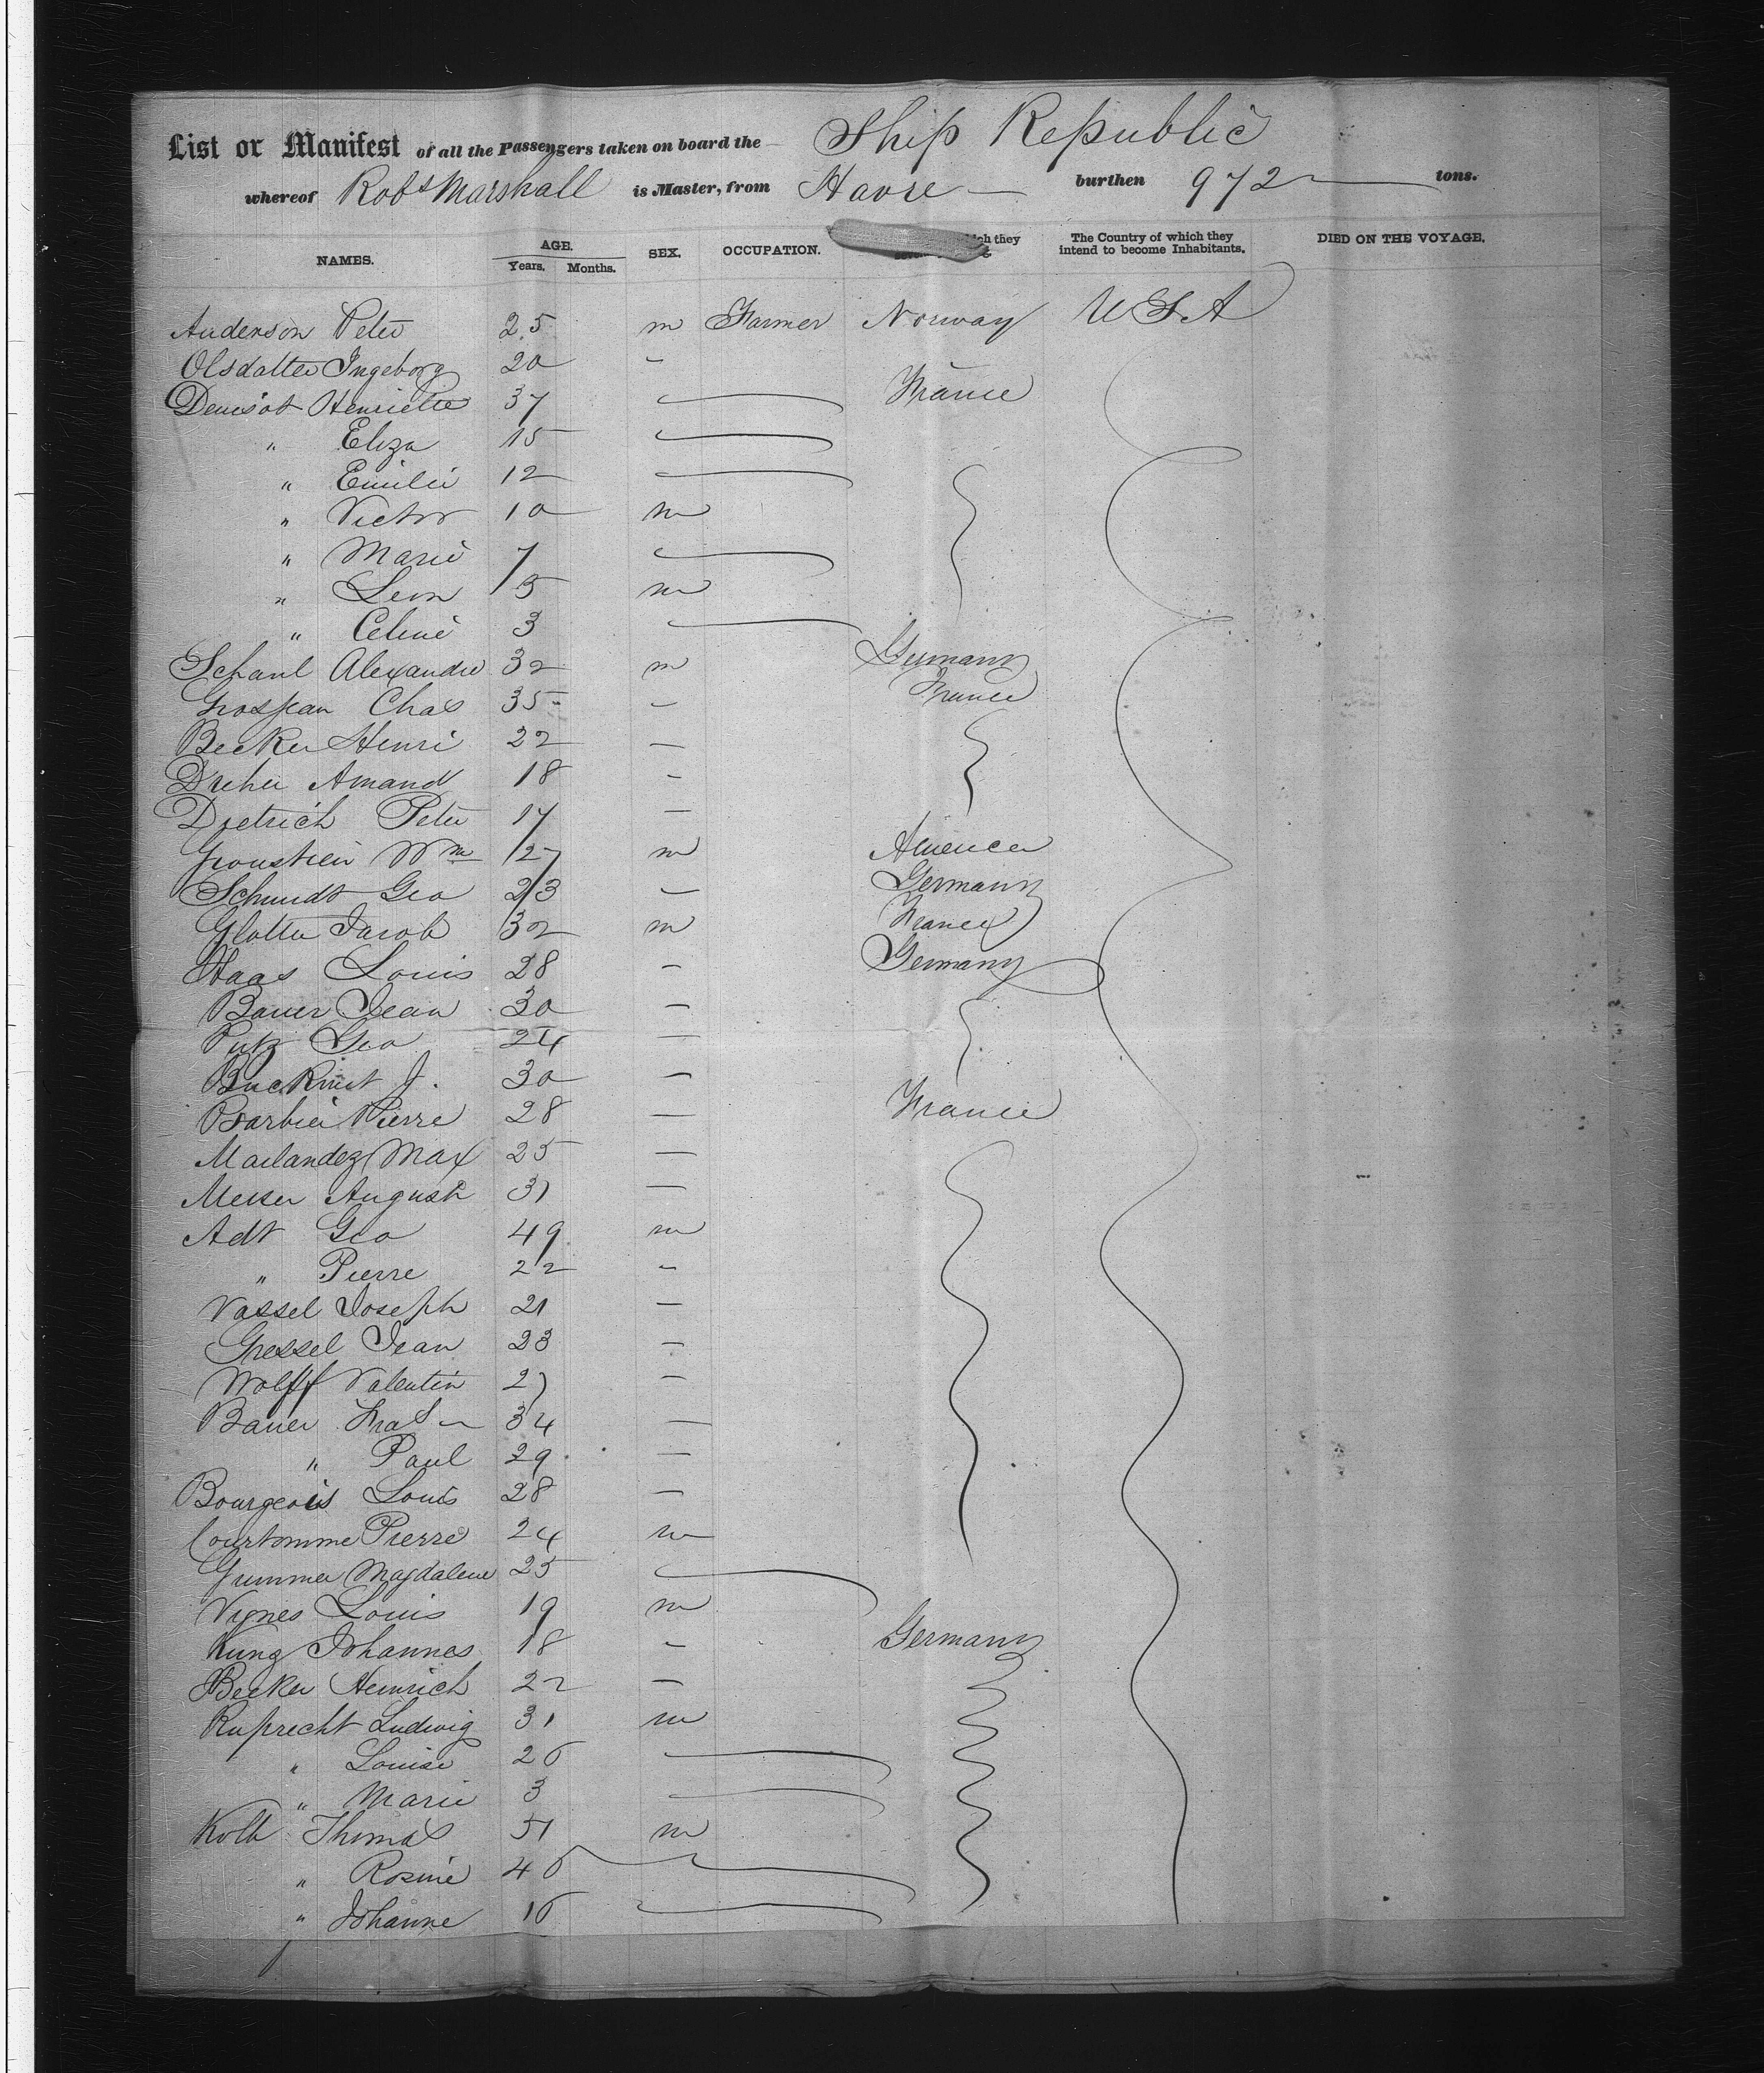 List or Manifest of all the Passengers taken on board the Ship Republic
whereof Robt Marshall is Master, from Havre burthen 972 tons.
NAMES. AGE. Years. Months. SEX. OCCUPATION. ich they The Country of which they intend to become Inhabitants. DIED ON THE VOYAGE.
Anderson Peter 25 m Farmer Norway U S A
Olsdatter Ingeborg 20 -
Denisot Henriette 37 France
" Eliza 15
" Emilie 12
" Victor 10 m
" Marie 7
" Leon 5 m
" Celine 3
Schaul Alexandre 32 m Germany
Grosjean Chas 35 - France
Becker Henri 22 -
Dreher Amand 18 -
Dietrich Peter 17 -
Wm 27 m America
Schmidt Geo 23 - Germany
Glotter Jacob 32 m France
Haas Louis 28 - Germany
Bauer Jean 30 -
Putz Geo 24 -
J. 30 -
Barbier Pierre 28 - France
Mailandez Max 25 -
August 31 -
Adt Geo 49 m
" Pierre 22 -
Vassel Joseph 21 -
Gressel Jean 23 -
Wolff Valentin 27 -
Bauer 34 -
" Paul 29 -
Bourgeois Louis 28 -
Courtomme Pierre 24 m
Grimmer Magdalene 25
Vignes Louis 19 m
Kung Johannes 18 - Germany
Becker Heinrich 22 -
Ruprecht Ludwig 31 m
" Louise 26
" Marie 3
Kolb Thomas 51 m
" Rosine 46
" Johanne 16